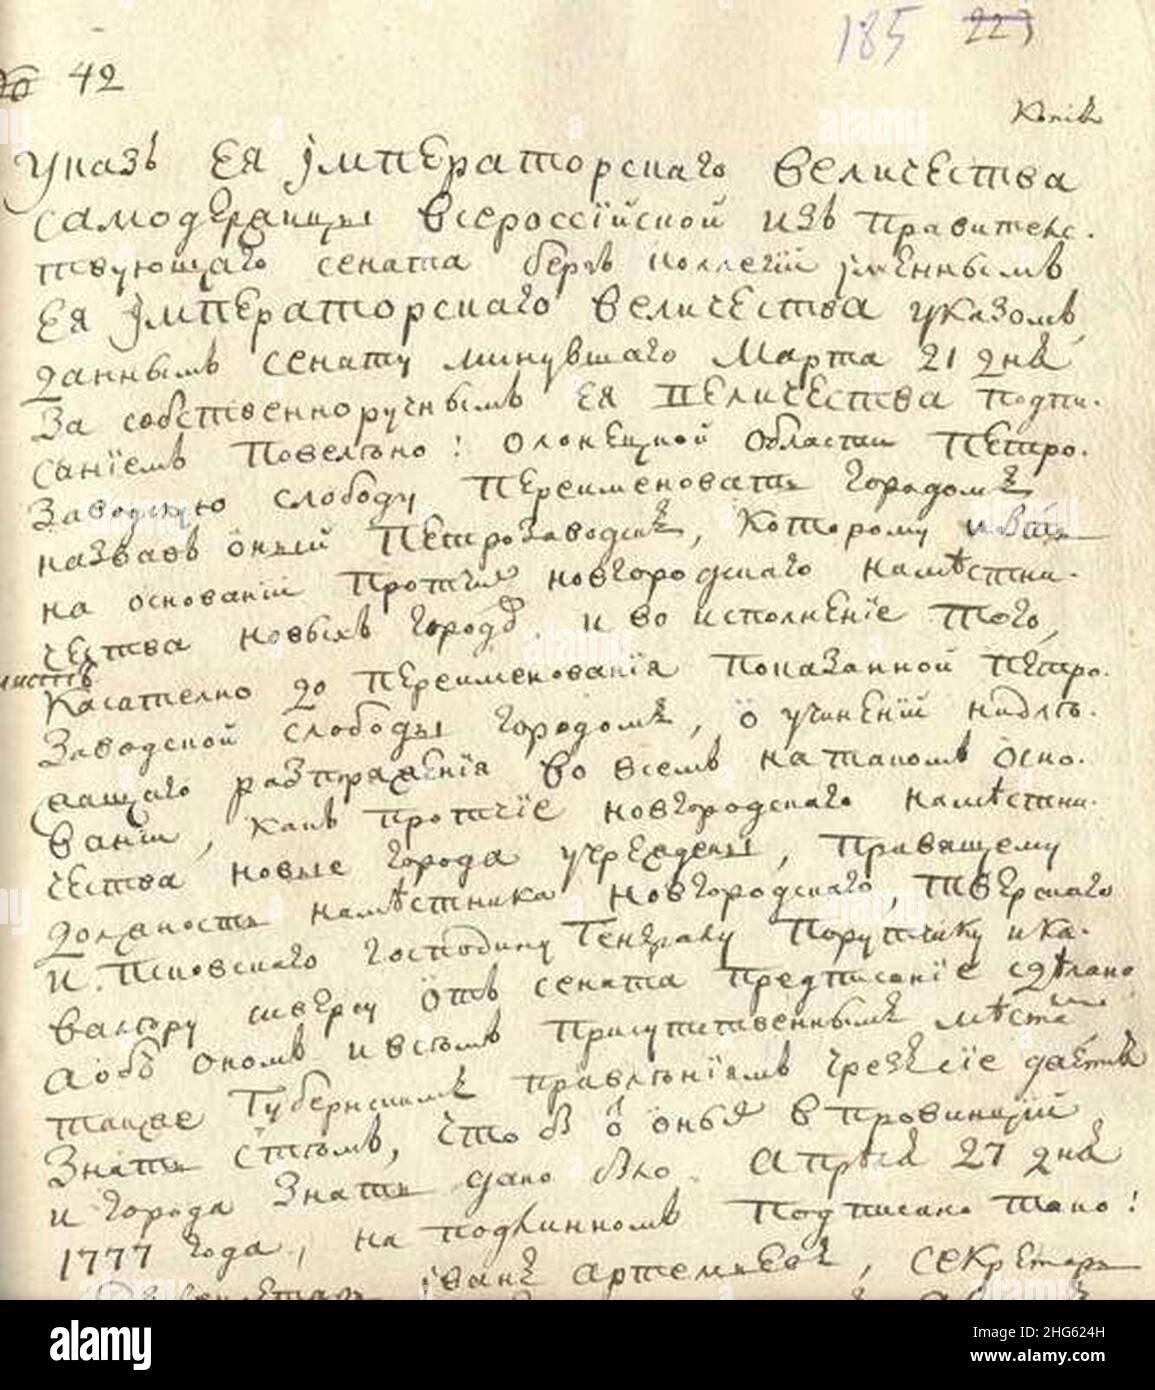 185 223
№ 42
Копiя
Указъ ЕЯ Императорскаго Величества
самодержицы всероссїйской изъ правителс.
твующаго сената бергъ коллегїи имяннымъ
ЕЯ Императорскаго величества указомъ
даннымъ сенату минувшаго Марта 21 дня
за собственноручнымъ ЕЯ Величества подпи.
санїемъ повелѣно: олонецкой области Петро.
заводскую слободу переименовать городомъ
назвавъ оный Петрозаводскъ, которому и быть
на основанїи протчихъ новгородскаго намѣстни.
чества новыхъ городовъ. и во исполненїе того,
касателно до переименованїя показанной петро.
заводской слободы городомъ, о учиненїи надлѣ.
жащаго разпоряженїя во всемъ на такомъ осно.
ванїи, какъ протчїе новгородскаго намѣстни.
чества новые города учреждены, правящему
должность намѣстника новгородскаго, тверскаго
и псковскаго господину Генералу Порутчику и ка.
валеру сиверсу отъ сената предписанїе сдѣлано
а объ ономъ и всѣмъ присутственнымъ мѣстамъ
также Губернскимъ правленїямъ чрезъ сїе даетъ
знать стѣмъ, чтоб о оны в провинцїи
и города знать дано было. Апрѣля 27 дня
1777 года, на подлинномъ подписано тако:
Иванъ Артемьевъ, секретарь
alamy
Image ID: 2HG624H
www.alamy.com